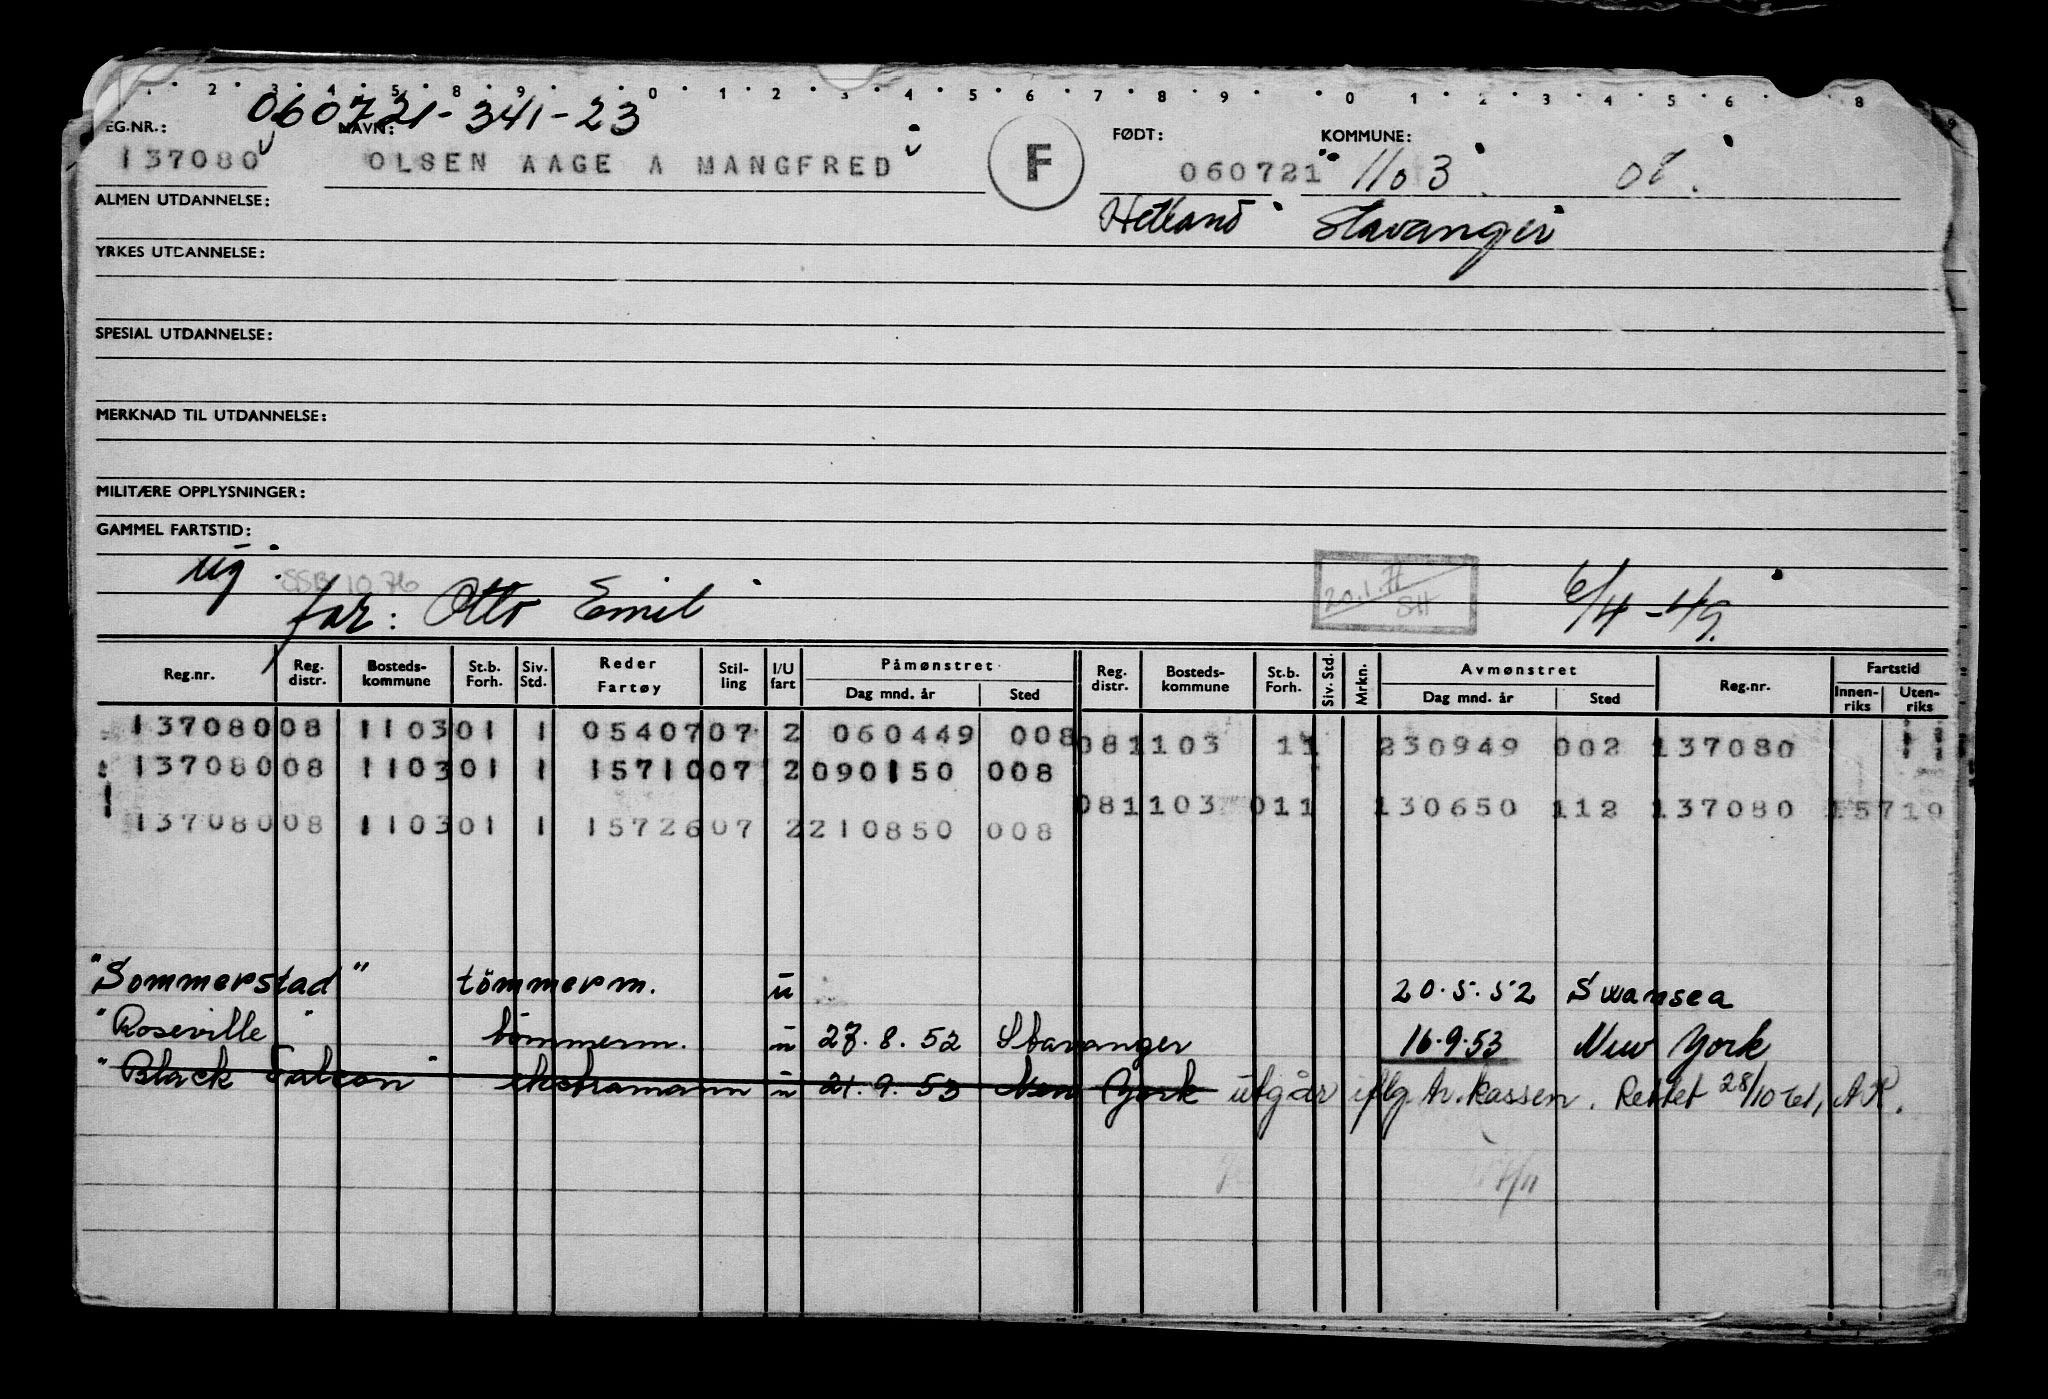 060721-341-23
EG.NR.: NAVN: FØDT: KOMMUNE:
137080 OLSEN AAGE A MANGFRED F 060721 1103 08.
ALMEN UTDANNELSE: Hetland Stavanger
YRKES UTDANNELSE:
SPESIAL UTDANNELSE:
MERKNAD TIL UTDANNELSE:
MILITÆRE OPPLYSNINGER:
GAMMEL FARTSTID:
ug. SSB 1076 6/4-49.
far: Otto Emil
Reg.nr. Reg. distr. Bosteds- kommune St.b. Forh. Siv. Std. Reder Fartøy Stil- ling I/U fart Påmønstret Dag mnd. år Sted Reg. distr. Bosteds- kommune St.b. Forh. Siv. Std. Mrkn. Avmønstret Dag mnd. år Sted Reg.nr. Fartstid Innen- riks Uten- riks
137080 08 1103 01 1 05407 07 2 060449 008 08 1103 11 230949 002 137080
137080 08 1103 01 1 15710 07 2 090150 008
08 1103 011 130650 112 137080 15719
137080 08 1103 01 1 15726 07 2 210850 008
"Sommerstad" tömmerm. u 20.5.52 Swansea
"Roseville" tömmerm. u 27.8.52 Stavanger 16.9.53 New York
"Black Falcon" ekstramann u 21.9.53 New York utgår iflg. tr.kassen. Rettet 28/10 A.K.